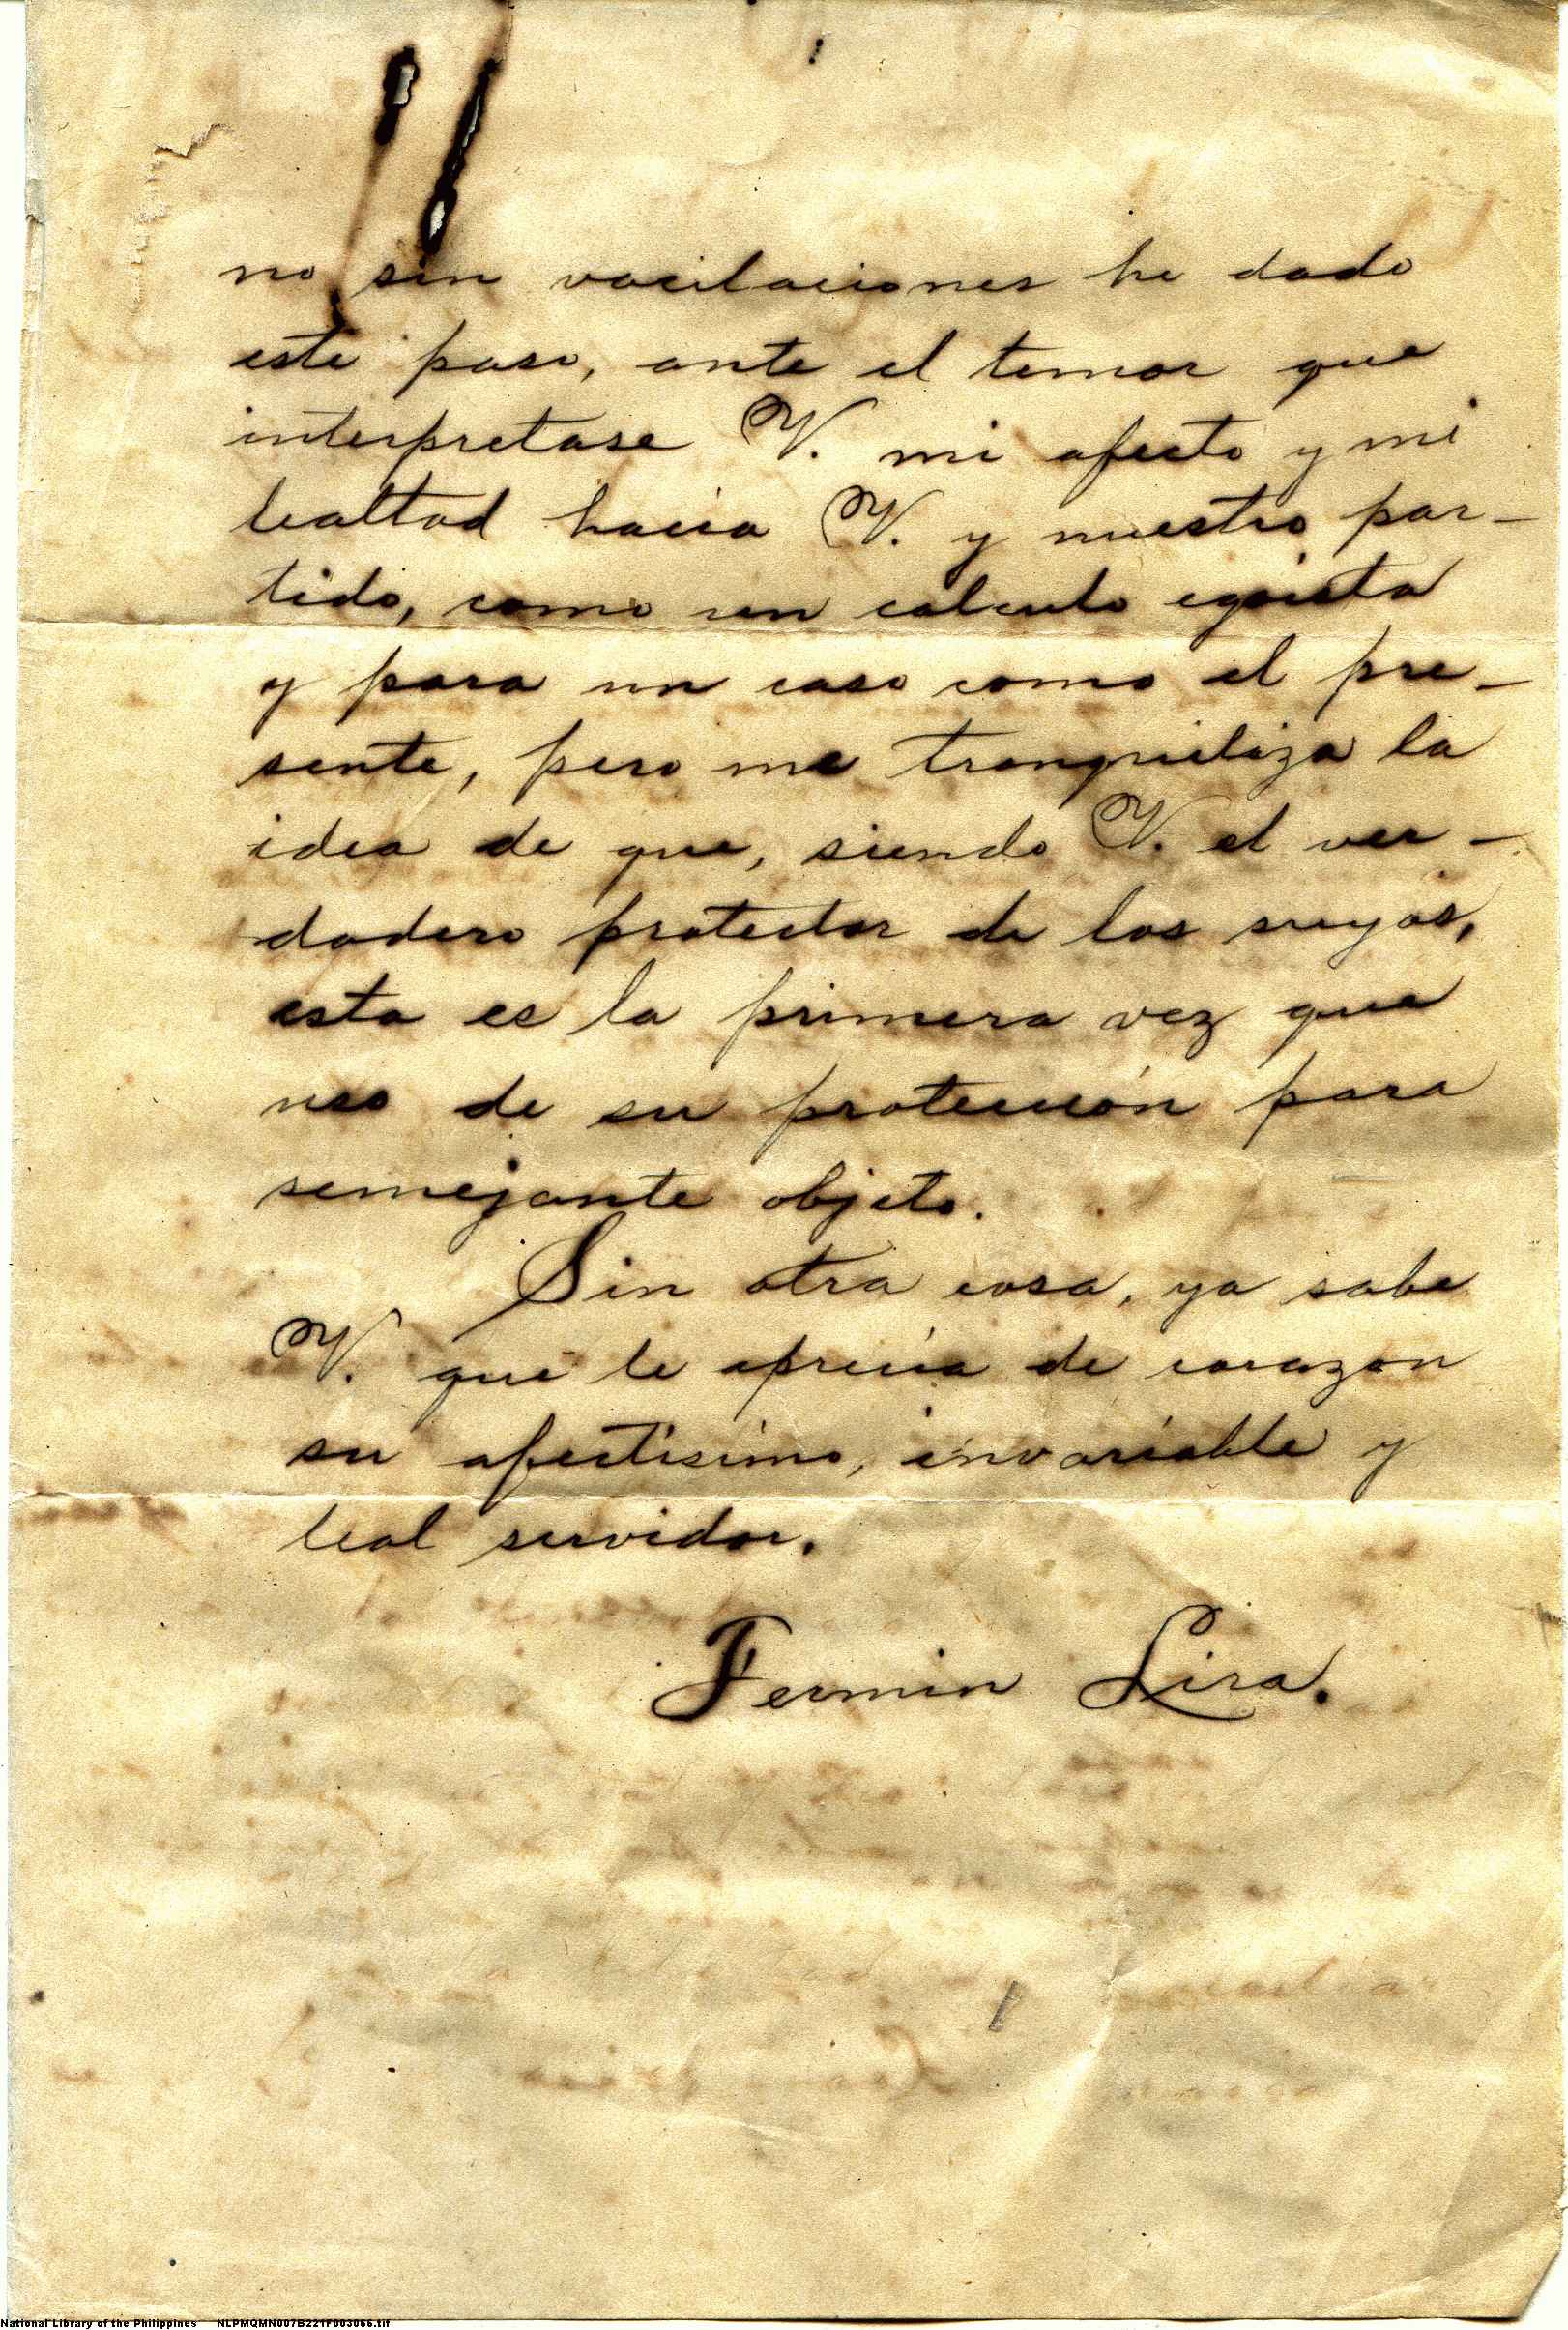 no sin vacilaciones he dado
este paso, ante el temor que
interpretase V. mi afecto y mi
lealtad hacia V. y nuestro par-
tido, como un calculo egoista
y para un caso como el pre-
sente, pero me tranquiliza la
idea de que, siendo V. el ver-
dadero protector de los suyos,
esta es la primera vez que
uso de su protección para
semejante objeto.
Sin otra cosa, ya sabe
V. que le aprecia de corazon
su afectisimo, invariable y
leal servidor.
Fermin Lira.
National Library of the Philippines NLPMQMN007B221F003066.tif